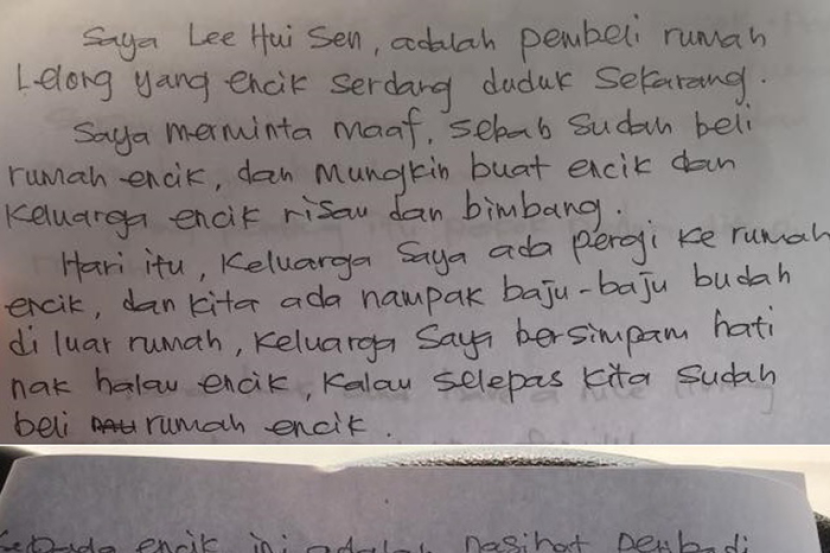 Saya Lee Hui Sen, adalah pembeli rumah
Lelong yang encik serdang duduk Sekarang.
Saya meminta maaf, sebab Sudah beli
rumah encik, dan mungkin buat encik dan
Keluarga encik risau dan bimbang.
Hari itu, Keluarga Saya ada pergi ke rumah
encik, dan kita ada nampak baju-baju budah
di luar rumah, Keluarga Saya bersimpam hati
nak halau encik, Kalau selepas kita Sudah
beli rumah encik.
encik ini adalah nasihat peribadi